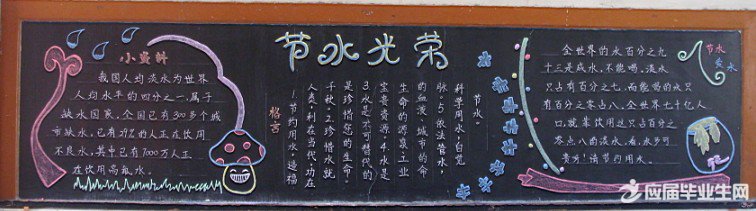 节水光荣
小资料
我国人均淡水为世界
人均水平的四分之一,属于
缺水国家,全国已有300多个城
市缺水,已有29%的人正在饮用
不良水,其中已有7000万人正
在饮用高氟水。
格言
1.节约用水,造福
人类,利在当代,功在
千秋。2.珍惜水就
是珍惜您的生命。
3.水是不可替代的
宝贵资源。4.水是
生命的源泉、工业
的血液、城市的命
脉。5.依法管水,
科学用水,自觉
节水。
全世界的水百分之九
十三是咸水,不能喝。淡水
只占有百分之七,而能喝的水只
有百分之零点八。全世界七十亿人
口,就靠饮用这只占百分之
零点八的淡水。看,水多可
贵呀!请节约用水。
节水
爱水
应届毕业生网
YJBYS.COM